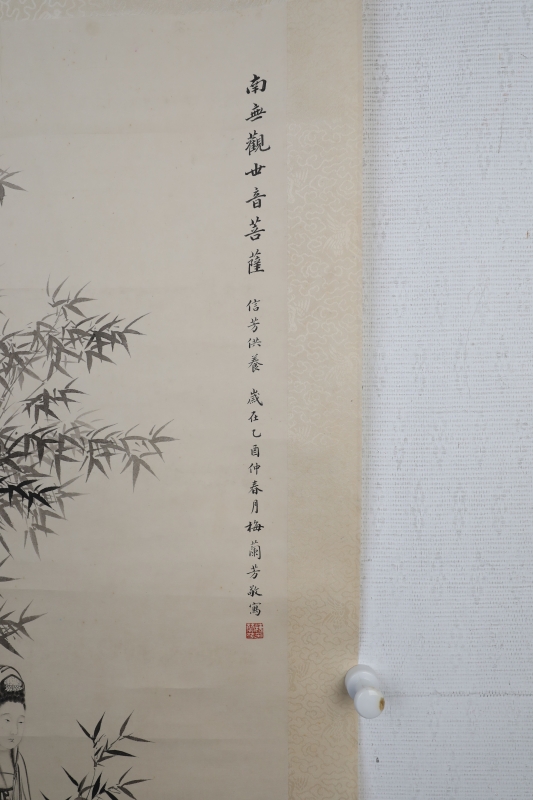 南無觀世音菩薩 信芳供養 歲在乙酉仲春月梅蘭芳敬寫